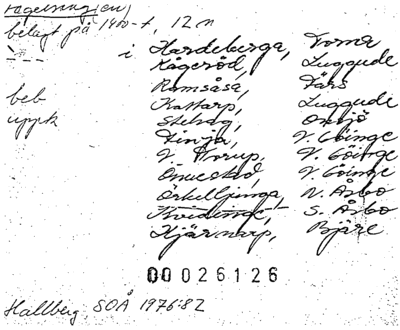 Fågelsång(en)
belagt på 1400-t, 12 n
i Hardeberga, Torna
Kågeröd, Luggude
Ramsåsa, Färs
beb Kattarp, Luggude
uppk Stehag, Onsjö
Finja, V. Göinge
V. Torup, V. Göinge
Önnestad, V. Göinge
Örkelljunga, N. Åsbo
Kvidinge, S. Åsbo
Hjärnarp, Bjäre
00 026126
Hallberg SOÅ 1976:82